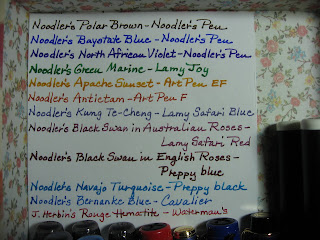 Noodler's Polar Brown - Noodler's Pen
Noodler's Baystate Blue - Noodler's Pen
Noodler's North African Violet - Noodler's Pen
Noodler's Green Marine - Lamy Joy
Noodler's Apache Sunset - Art Pen EF
Noodler's Antietam - Art Pen F
Noodler's Kung Te-Cheng - Lamy Safari Blue
Noodler's Black Swan in Australian Roses -
Lamy Safari Red
Noodler's Black Swan in English Roses -
Preppy blue
Noodler's Navajo Turquoise - Preppy black
Noodler's Bernanke Blue - Cavalier
J. Herbin's Rouge Hematite - Waterman's